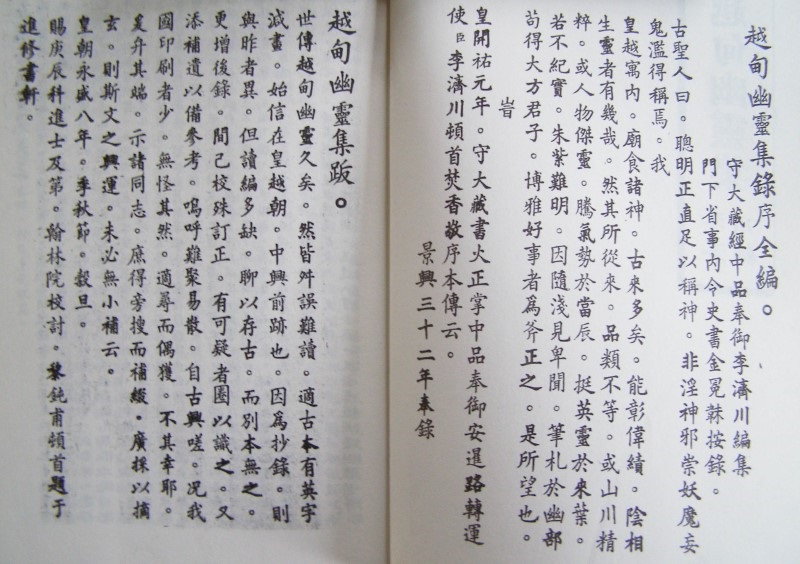 越甸幽靈集錄序全編。
守大藏經中品奉御李濟川編集
門下省事內令史書金冕䕶按錄。
古聖人曰。聰明正直足以稱神。非淫神邪祟妖魔妄
鬼濫得稱焉。我
皇越寓內。廟食諸神。古來多矣。能彰偉績。陰相
生靈者有幾哉。然其所從來。品類不等。或山川精
粹。或人物傑靈。騰氣勢於當辰。挺英靈於來葉。
若不紀實。朱紫難明。因隨淺見卑聞。筆札於幽部
苟得大方君子。博雅好事者為斧正之。是所望也。
旹
皇開祐元年。守大藏書火正掌中品奉御安暹路轉運
使臣李濟川頓首焚香敬序本傳云。
景興三十二年奉錄
越甸幽靈集跋。
世傳越甸幽靈久矣。然皆舛誤難讀。適古本有英字
減畫。始信在皇越朝。中興前跡也。因為抄錄。則
與昨者異。但讀編多缺。聊以存古。而別本無之。
更增後錄。間已校殊訂正。有可疑者圈以識之。又
添補遺以備參考。嗚呼難聚易散。自古興嗟。況我
國印刷者少。無怪其然。適尋而偶獲。不其幸耶。
爰升其端。示諸同志。庶得旁搜而補綴。廣採以摘
玄。則斯文之興運。未必無小補云。
皇朝永盛八年。季秋節。穀旦。
賜庚辰科進士及第。翰林院校討。黎鈍甫頓首題于
進修書軒。